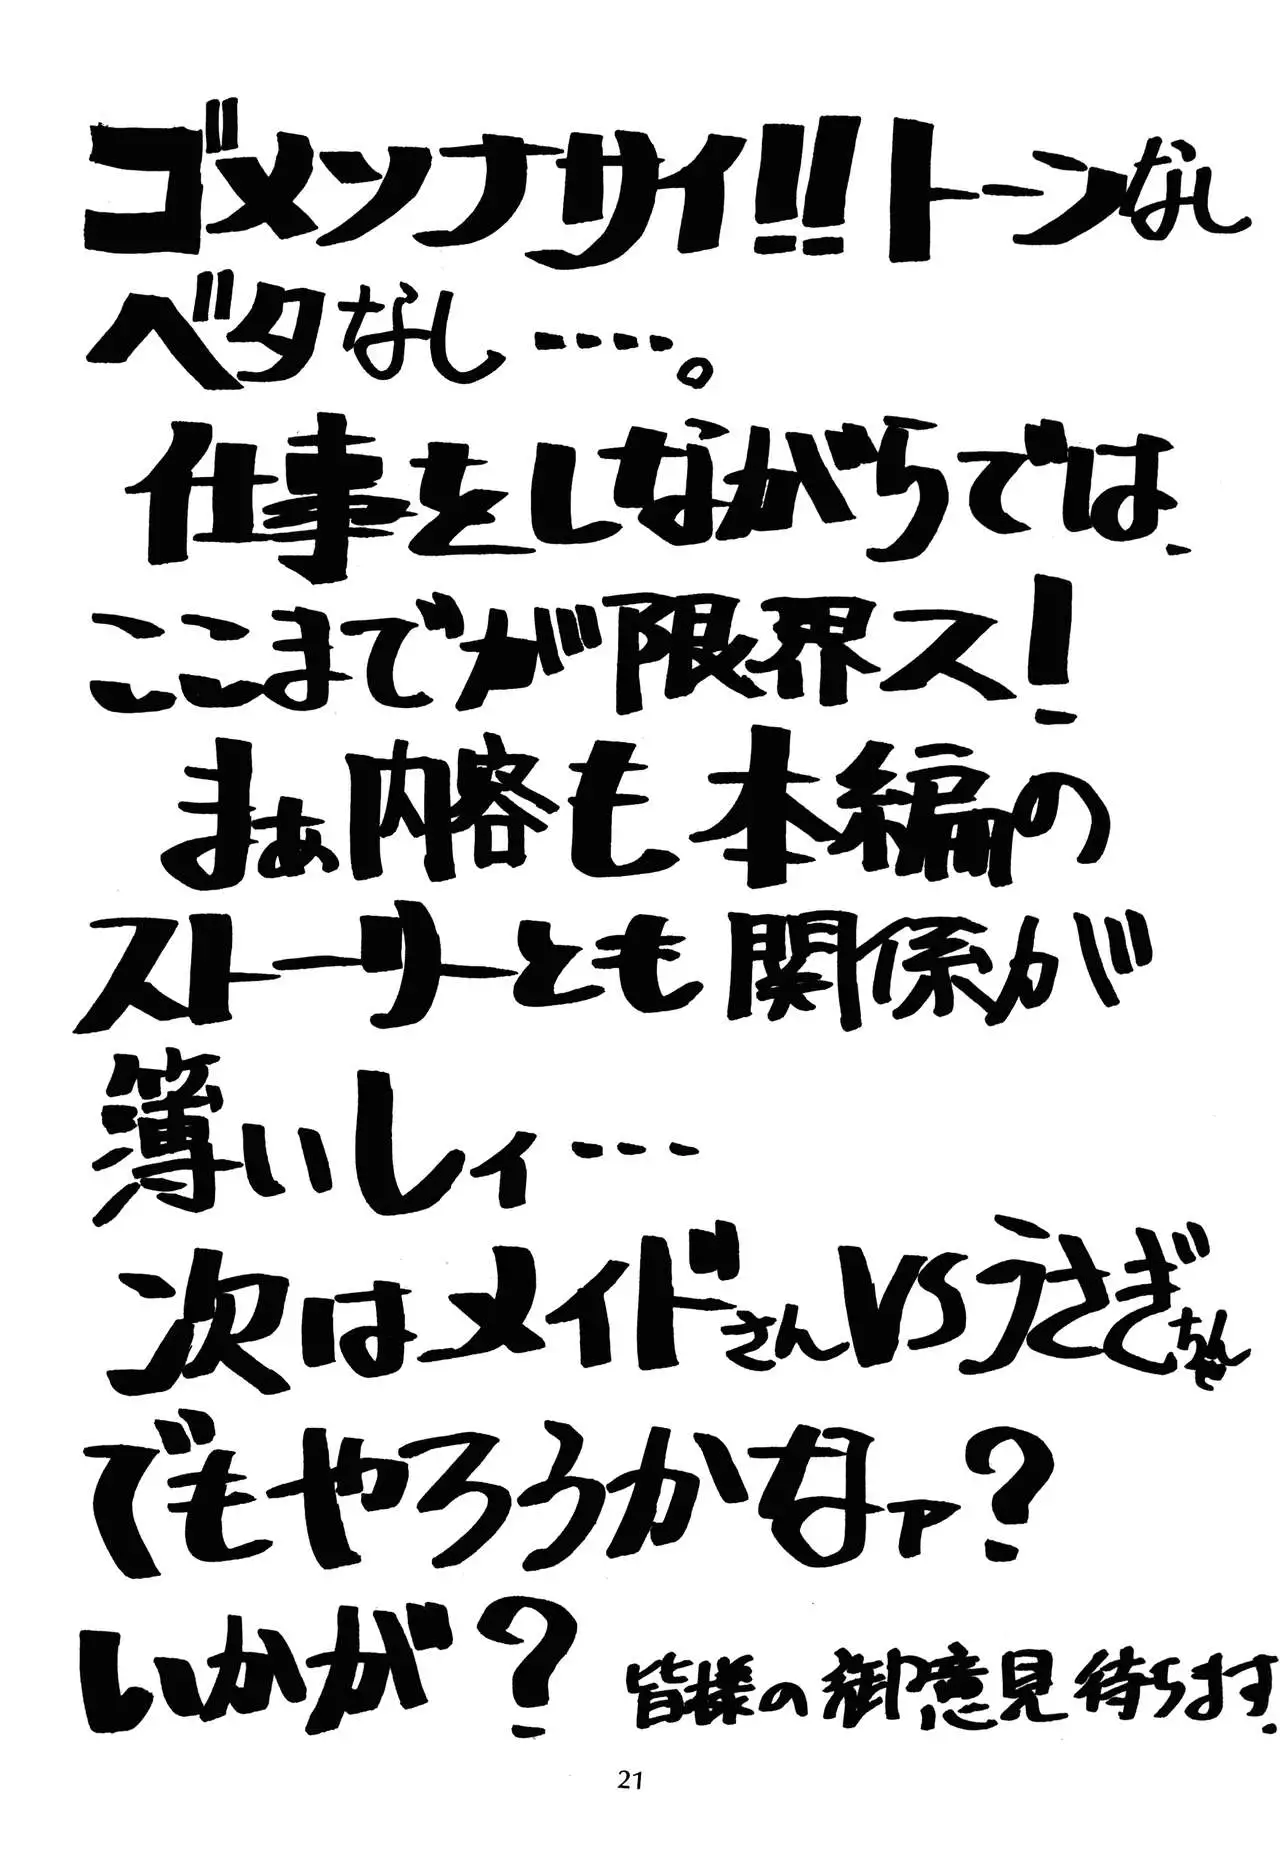 ゴメンナサイ!!トーンなし
ベタなし‥‥。
仕事をしながらでは、
ここまでが限界ス!
まぁ内容も本編の
ストーリーとも関係が
薄いしィ･･･
次はメイドさんVSうさぎちゃん
でもやろうかなァ?
いかが?
皆様の御意見待ちます.
21